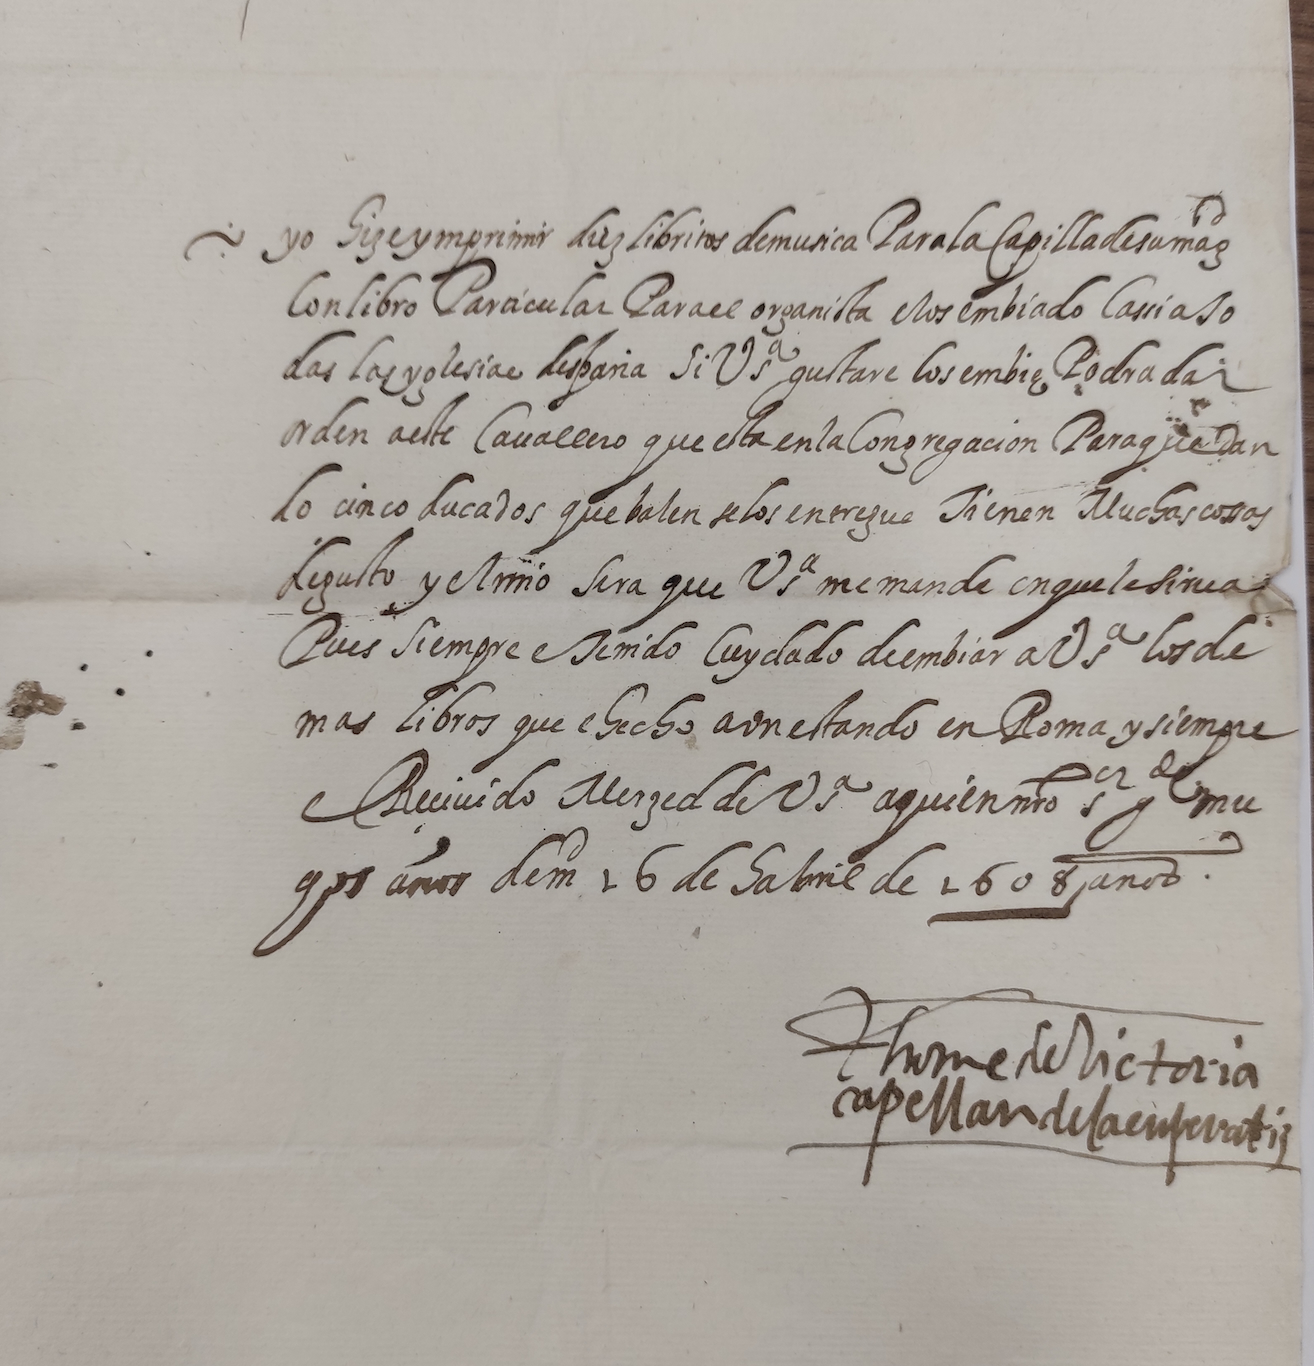 yo hize ymprimir diez libritos demusica Parala Capilla desumagd
Con libro Particular Parael organista elos embiado Cassi ato
das las yglesias despaña Si Vsª gustare losembie Podra dar
orden aeste Cavallero que esta enla Congregacion Paraque dan
do cinco ducados que balen selos entregue Tienen Muchas cossas
degusto y el mio sera que Vsª memande enquele sirva
Pues Siempre e tenido Cuydado deembiar a Vsª los de
mas libros que e hecho aun estando en Roma y siempre
e Recivido Merzed de Vsª aquien nro sr gde mu
chos años dem 26 de habril de 1608 años.
Thome de Victoria
capellan dela enperatriz